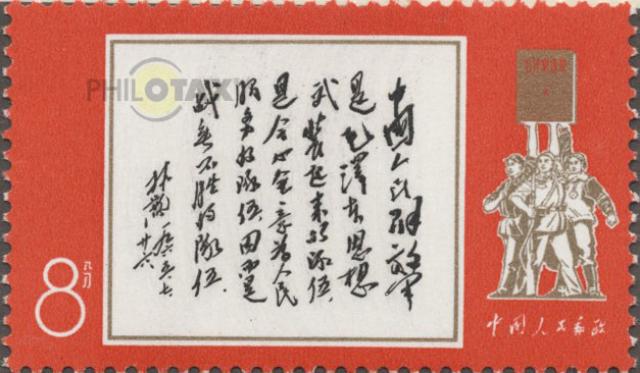 PHILOTAX
中國人民解放军
是毛澤东思想
武裝起来的隊伍，
是全心全意为人民
服务的隊伍，因而是
战无不胜的隊伍．
林彪 一九六五、七、
廿六
8分
中国人民邮政